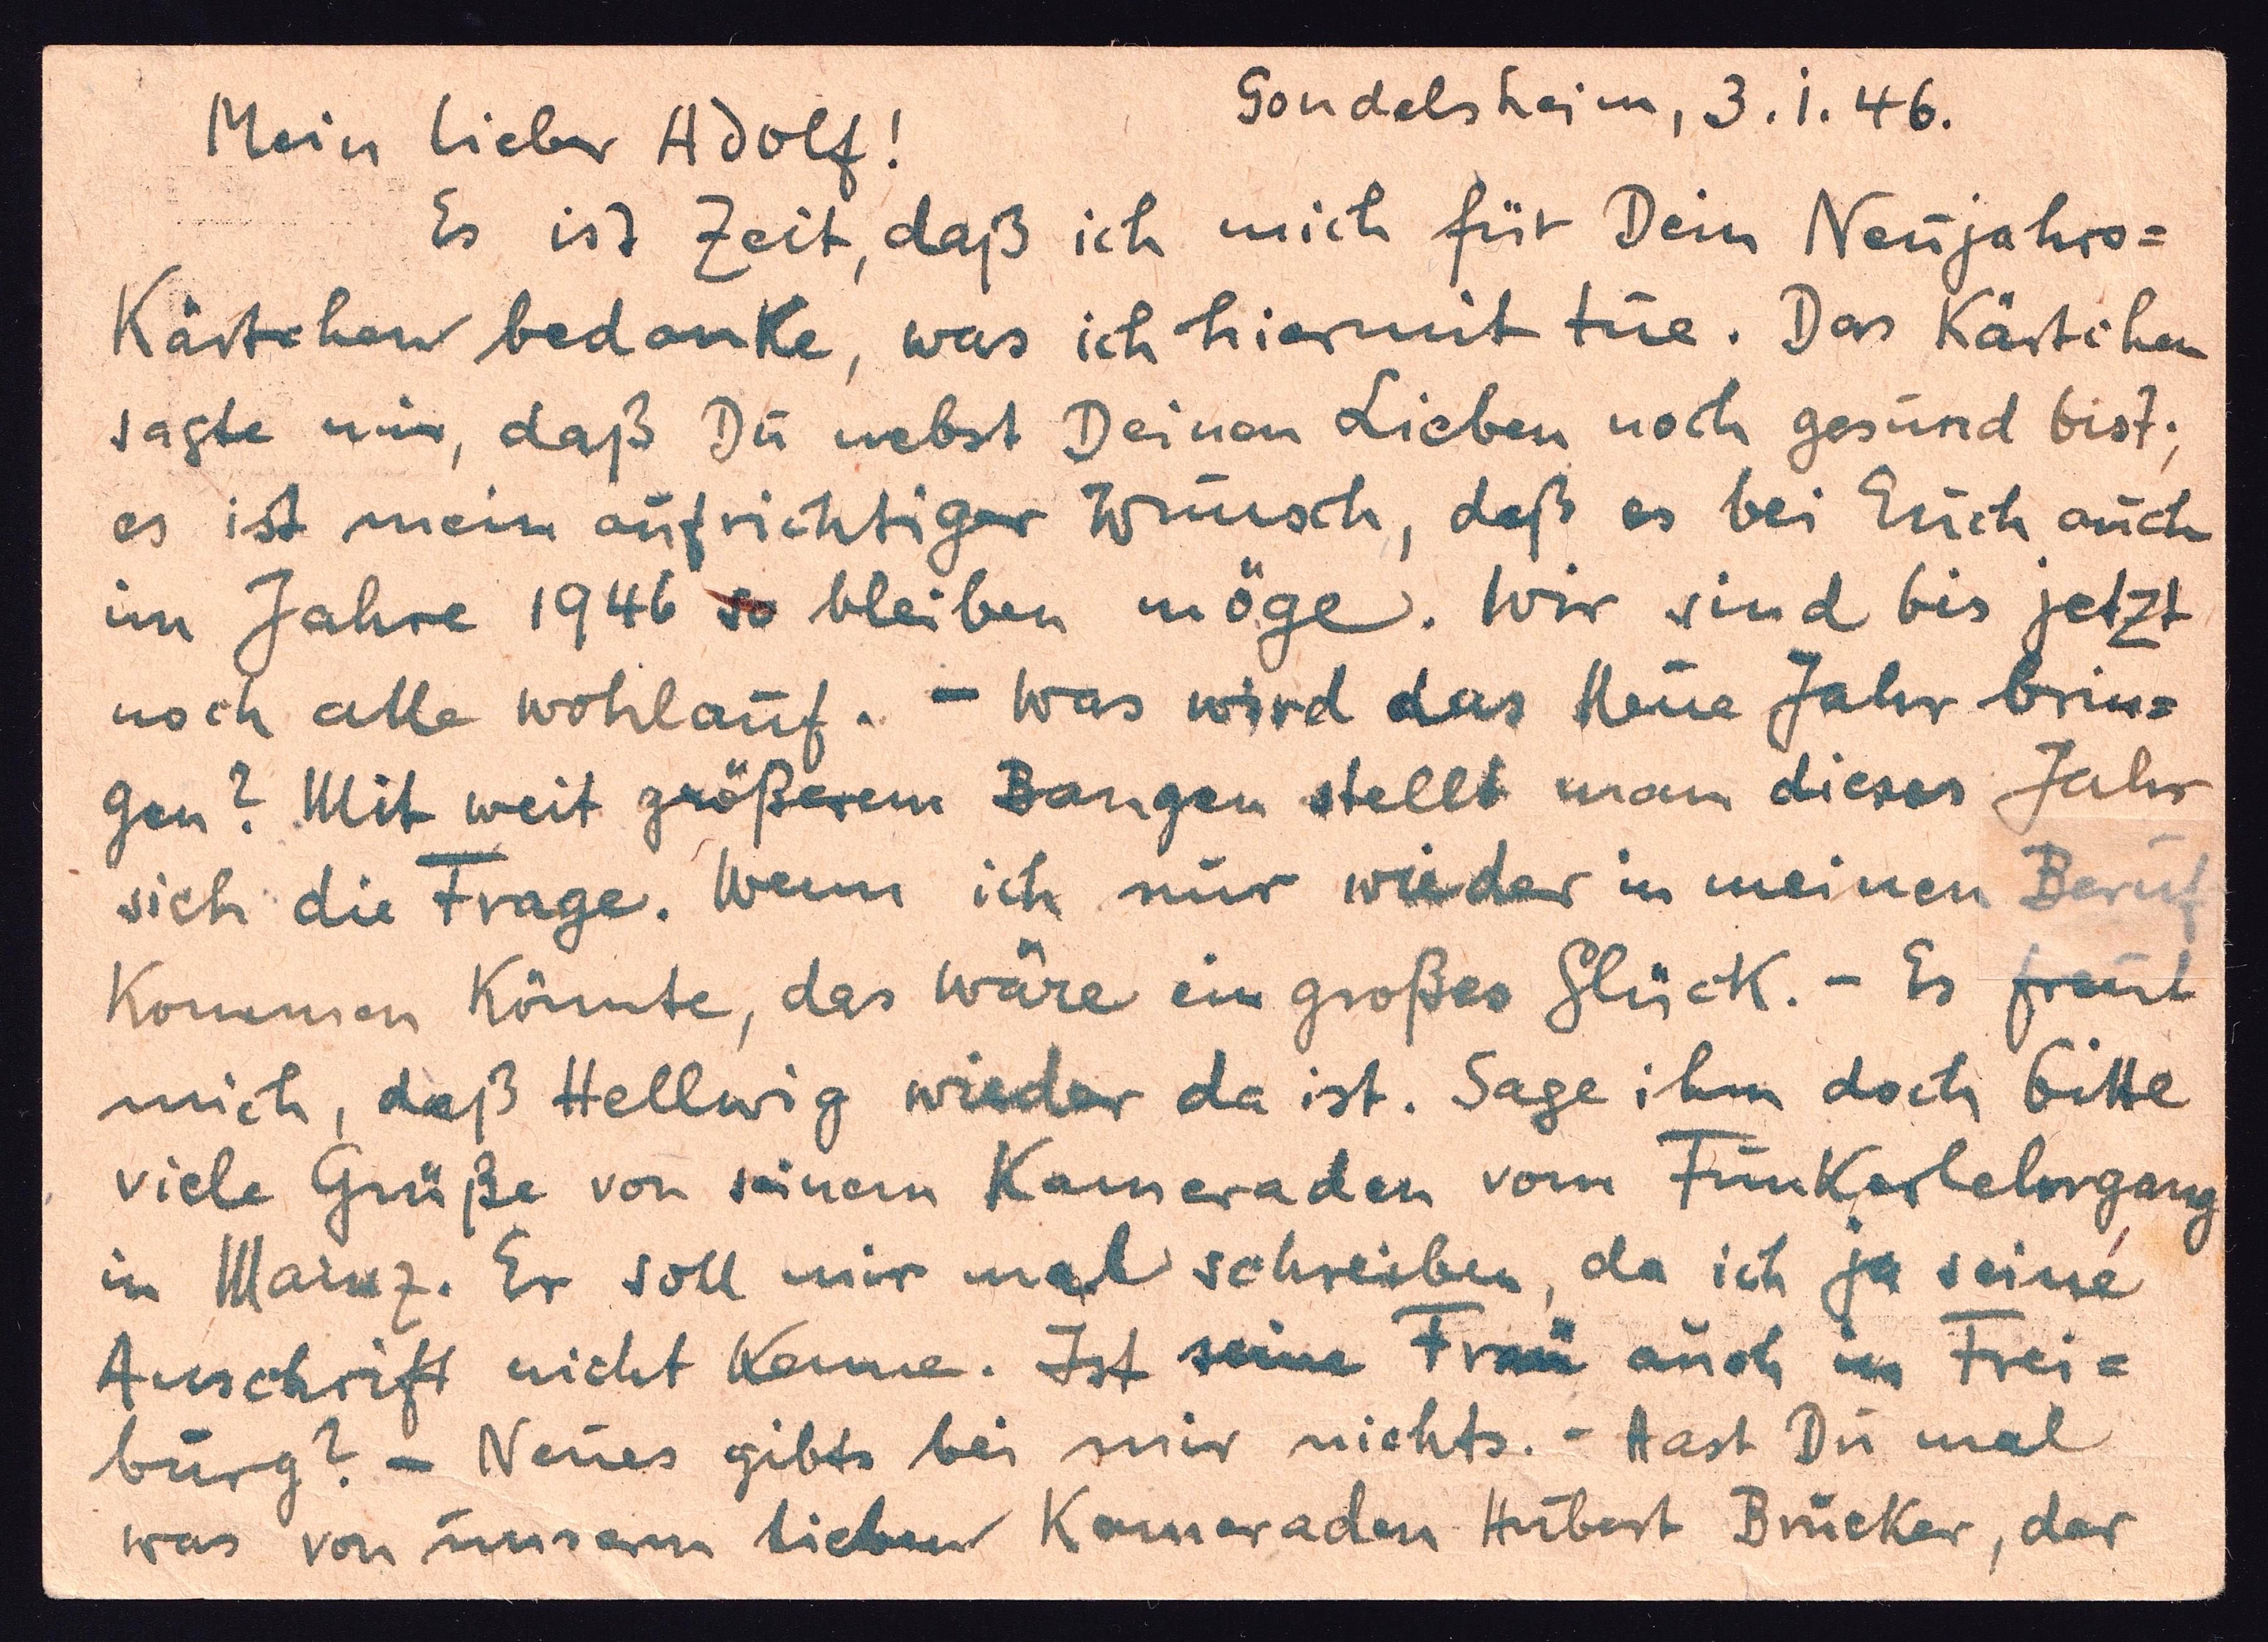 Gondelsheim, 3.1.46.
Mein lieber Adolf!
Es ist Zeit, daß ich mich für Dein Neujahrs=
Kärtchen bedanke, was ich hiermit tue. Das Kärtchen
sagte mir, daß Du nebst Deinen Lieben noch gesund bist;
es ist mein aufrichtiger Wunsch, daß es bei Euch auch
im Jahre 1946 so bleiben möge. Wir sind bis jetzt
noch alle wohlauf. - Was wird das Neue Jahr brin=
gen? Mit weit größerem Bangen stellt man dieses Jahr
sich die Frage. Wenn ich nur wieder in meinen Beruf
kommen könnte, das wäre ein großes Glück. - Es freut
mich, daß Hellwig wieder da ist. Sage ihm doch bitte
viele Grüße von seinem Kameraden vom Funkerlehrgang
in Mainz. Er soll mir mal schreiben, da ich ja seine
Anschrift nicht kenne. Ist seine Frau auch in Frei=
burg? - Neues gibts bei mir nichts. - Hast Du mal
was von unserm lieben Kameraden Hubert Brücker, der